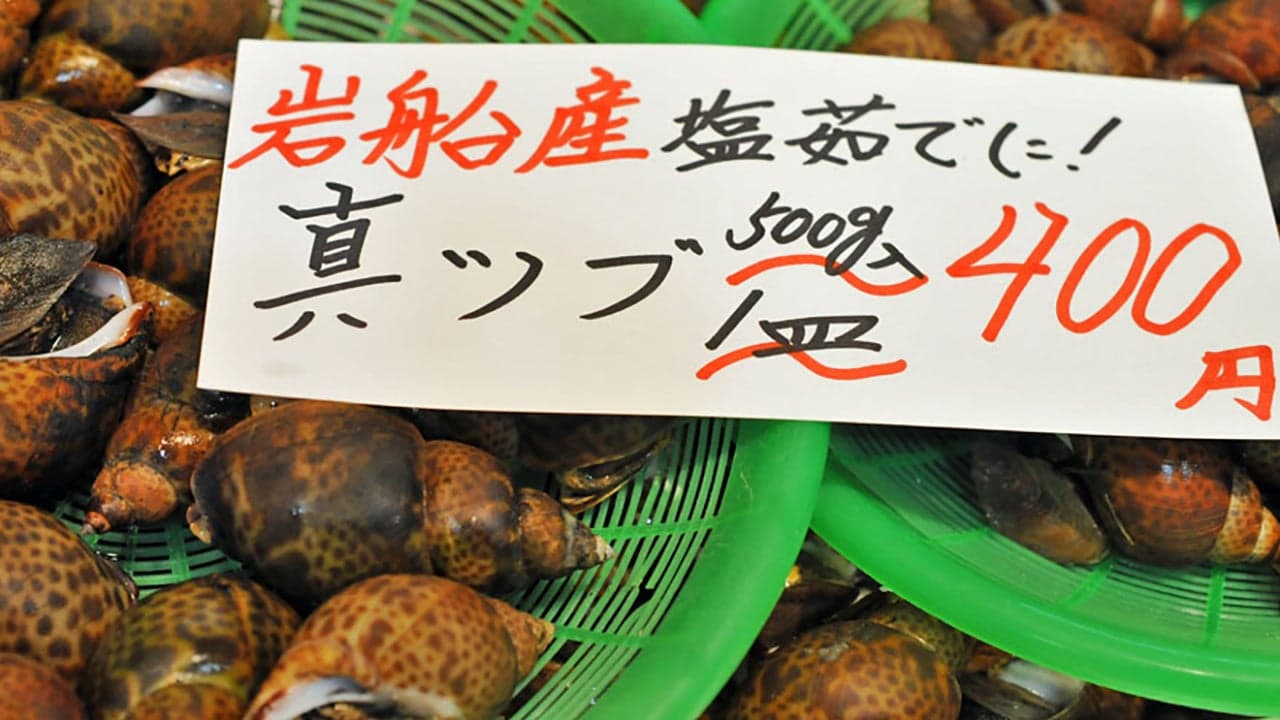 岩船産 塩茹でに!
真ツブ 500g入 1皿 400円